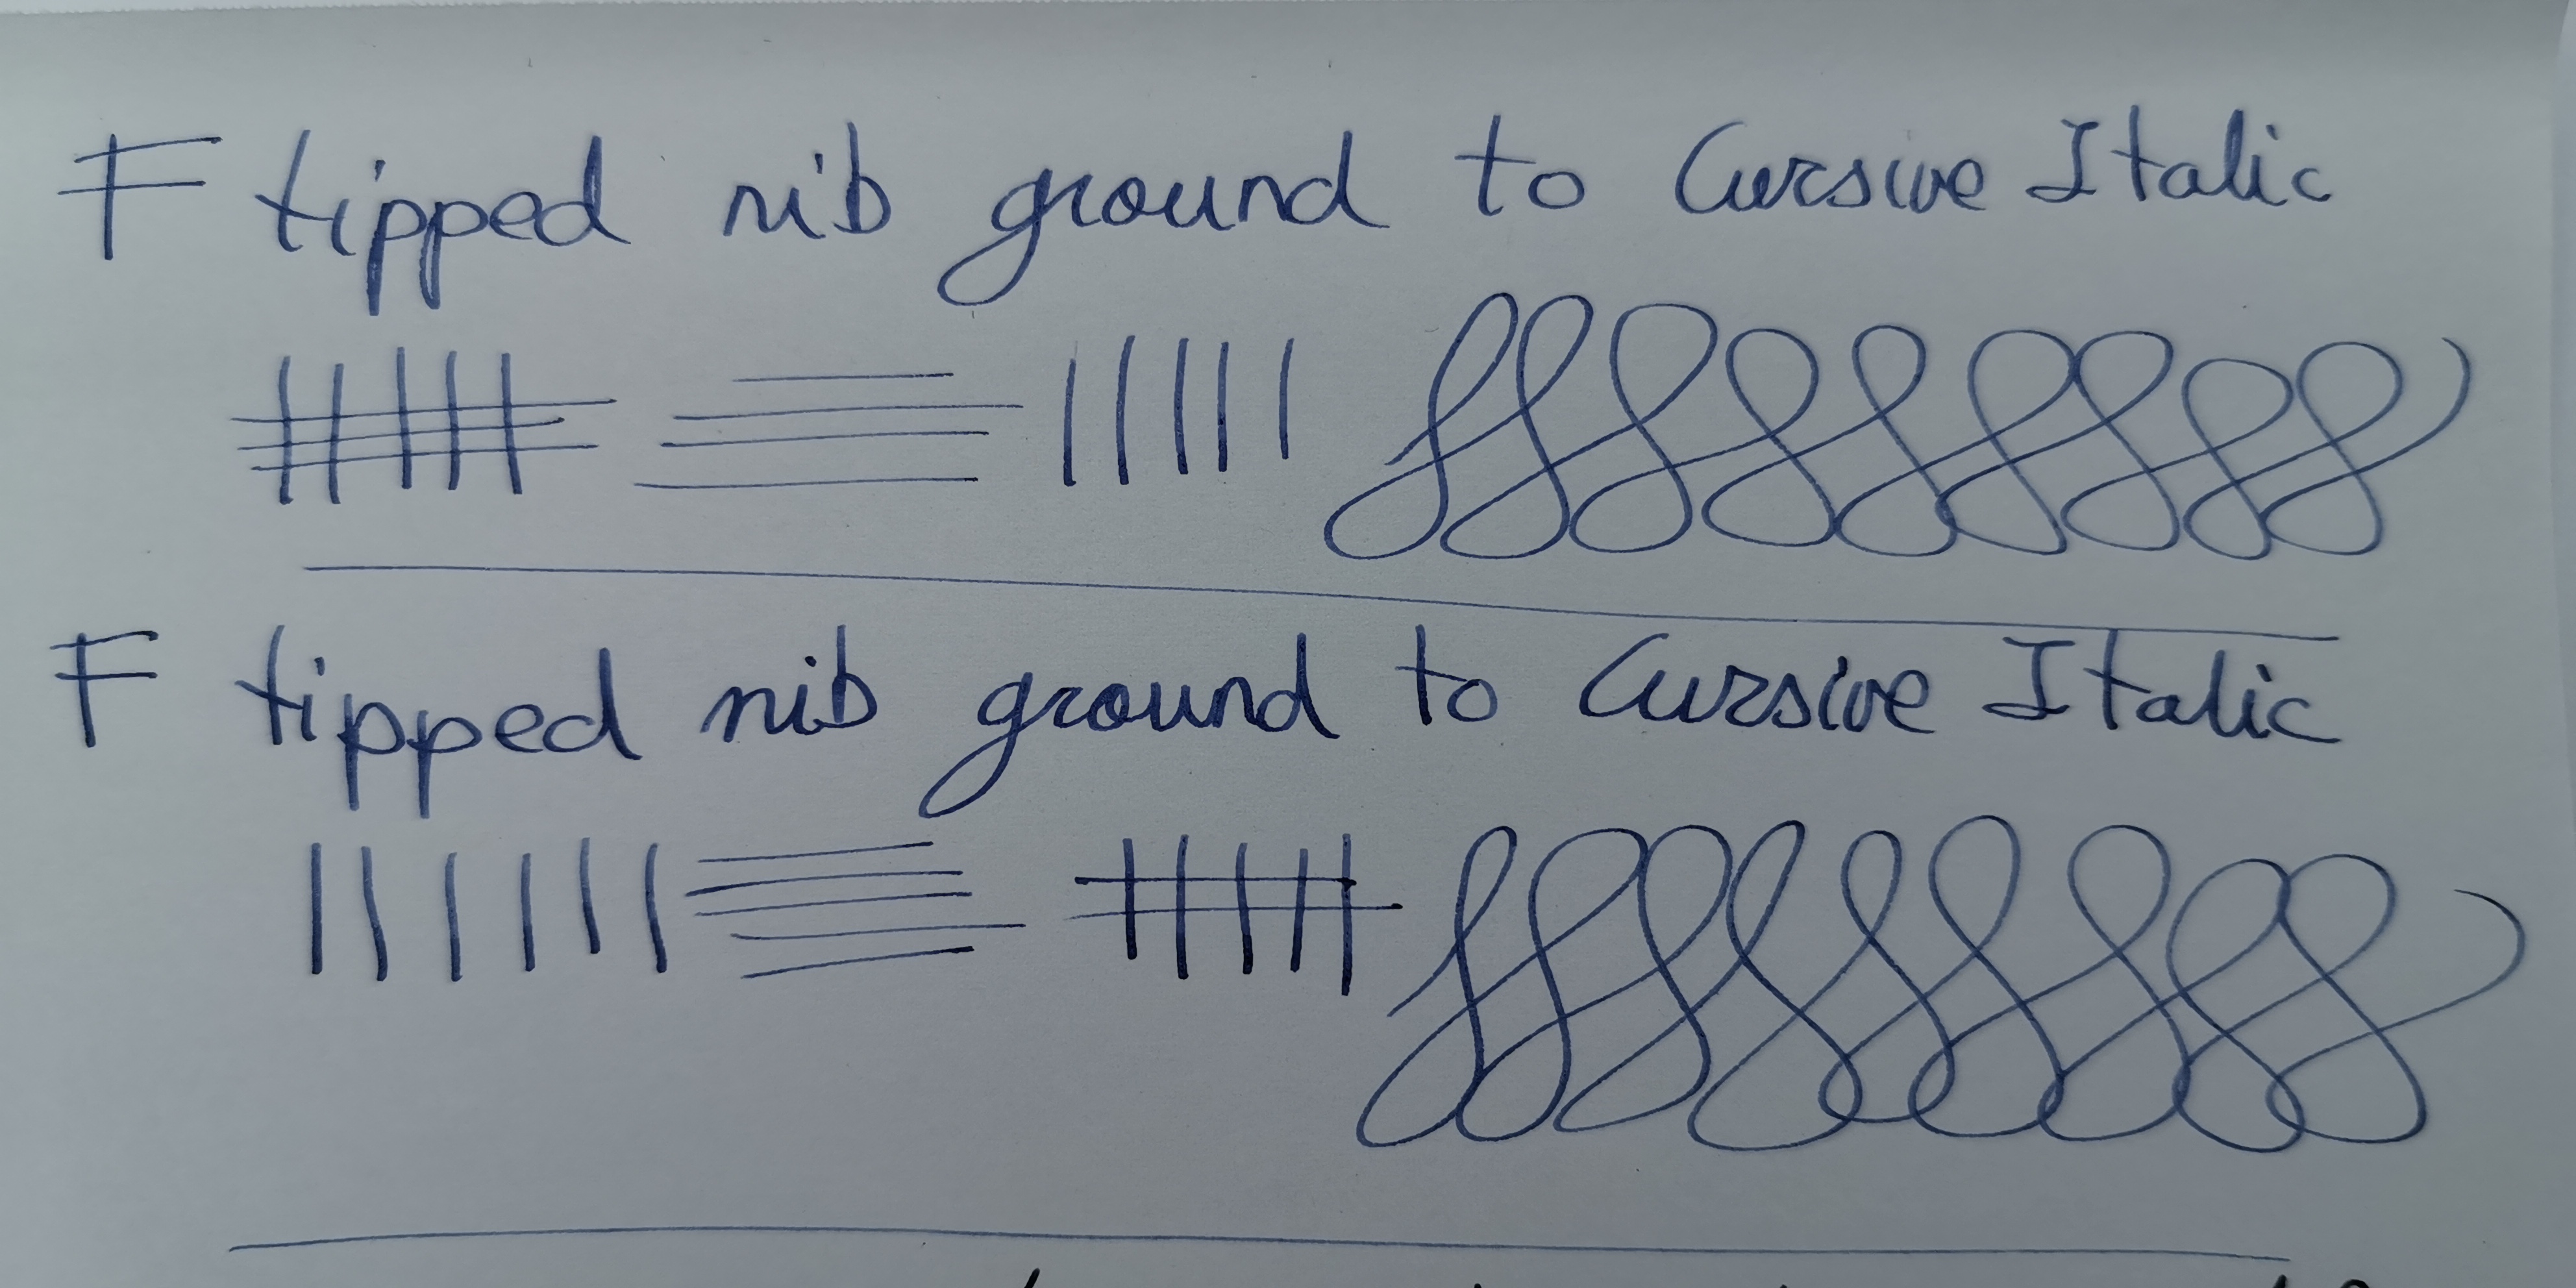 F tipped nib ground to Cursive Italic
F tipped nib ground to Cursive Italic